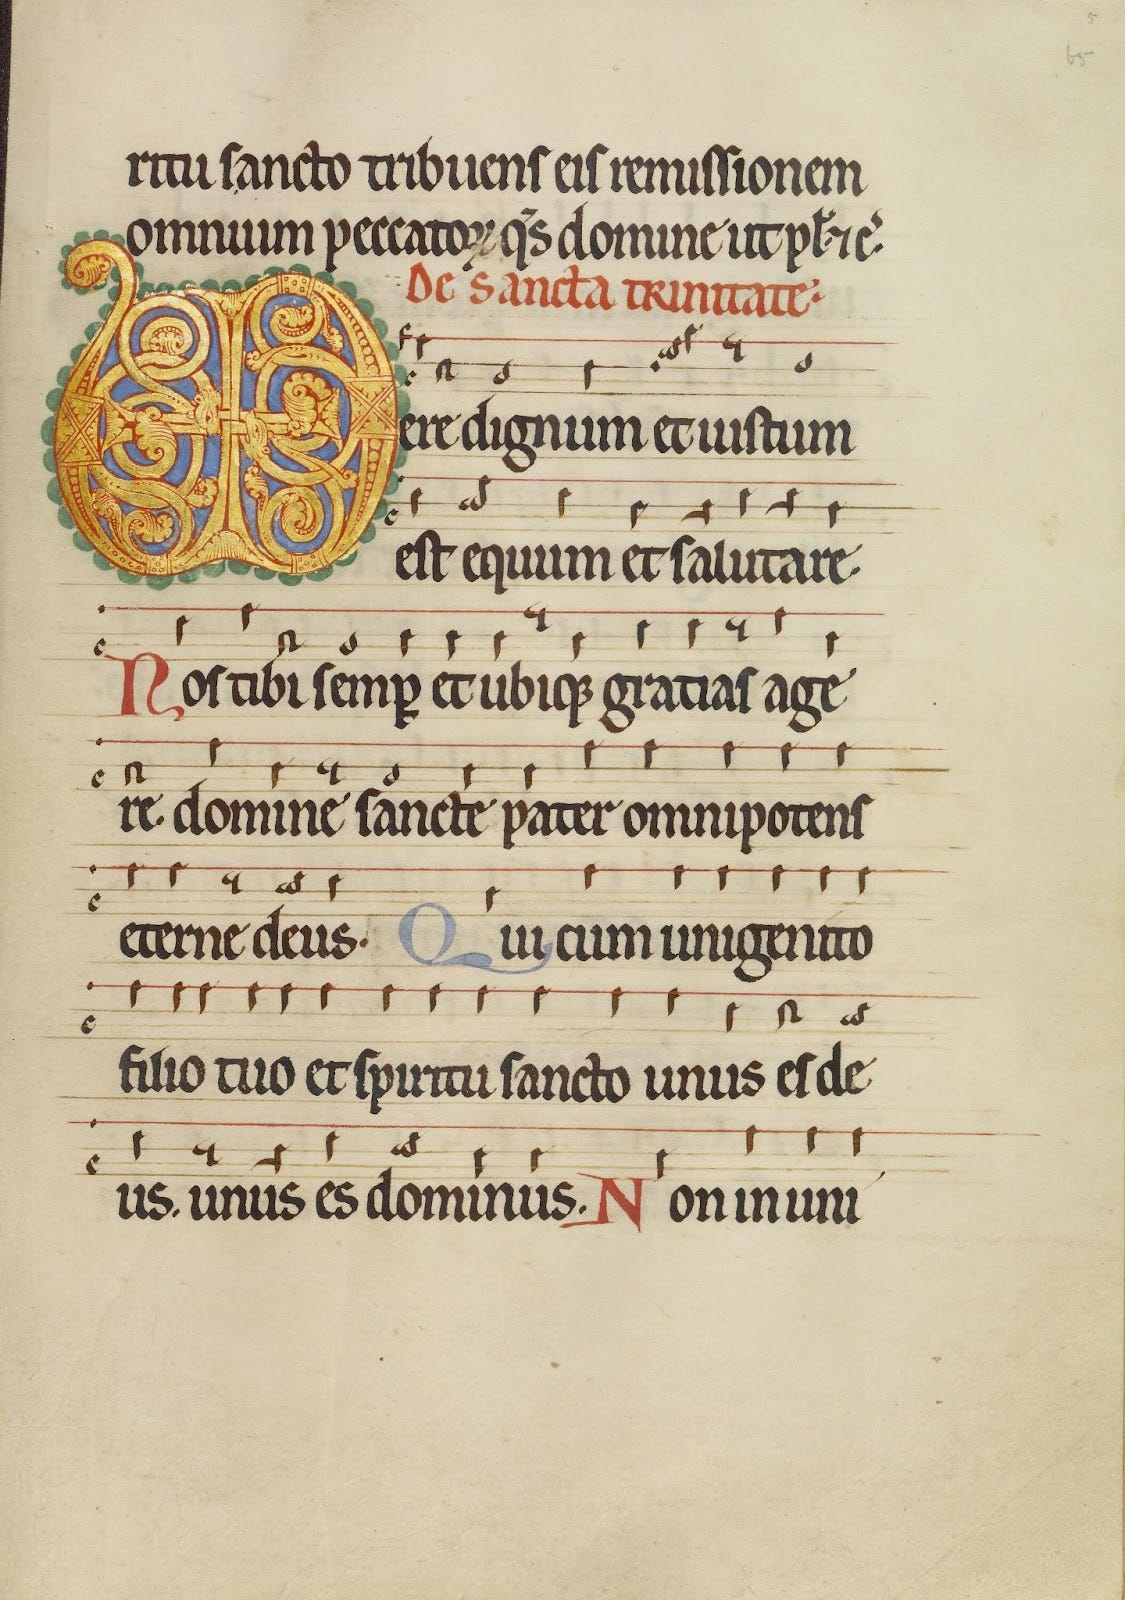 5
65
ritu sancto tribuens eis remissionem
omnium peccatoꝝ q̄s domine ut pł ⁊ c̄.
De sancta trinitate.
Vere dignum et iustum
est equum et salutare.
Nos tibi semꝑ et ubiqꝫ gratias age
re. domine sancte pater omnipotens
eterne deus. Qui cum unigenito
filio tuo et spiritu sancto unus es de
us. unus es dominus. Non in uni